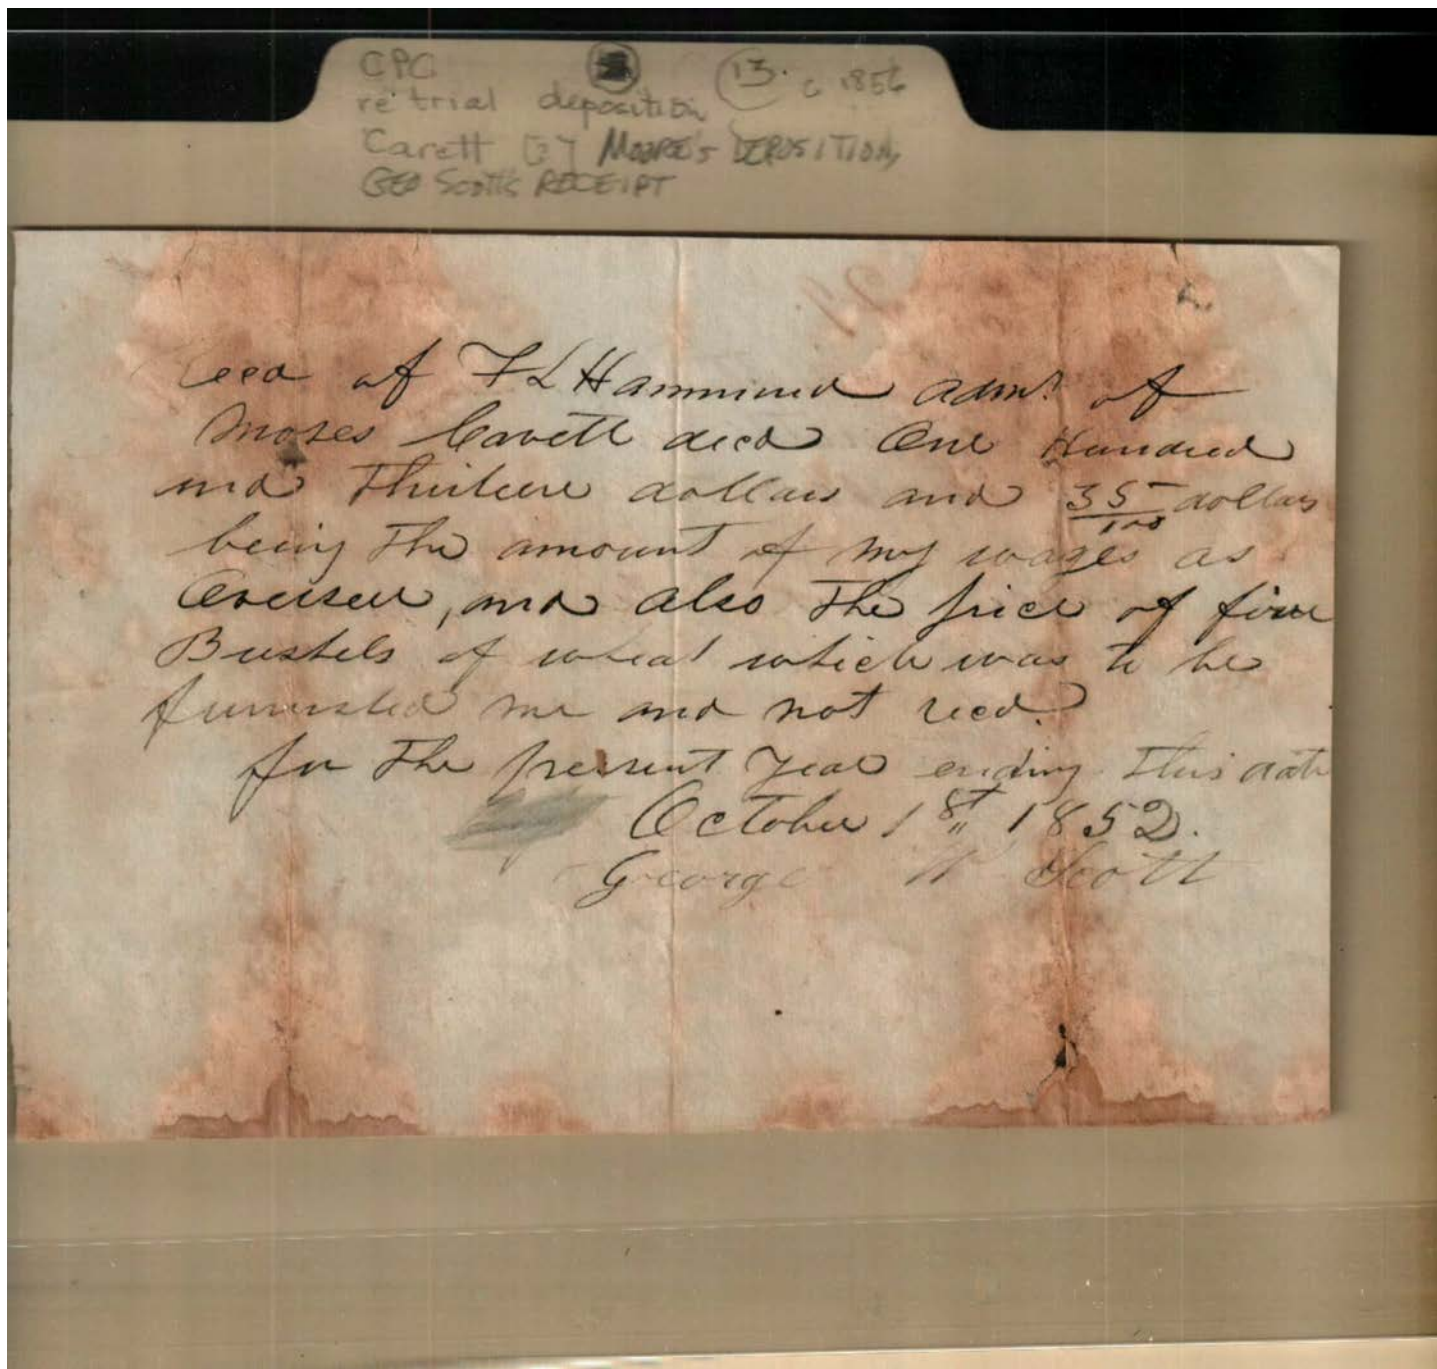 CPC 13. c 1856
re trial deposition
Carett [?] MOORE'S DEPOSITION,
GEO SCOTT'S RECEIPT
Recd of F L Hammond admr of
Moses Cavett decd One Hundred
and Thirteen dollars and 35/100 dollars
being The amount of my wages as
Overseer, and also The price of five
Bushels of wheat which was to be
furnished me and not recd.
for The present Year ending This date
October 1st 1852.
George W Scott